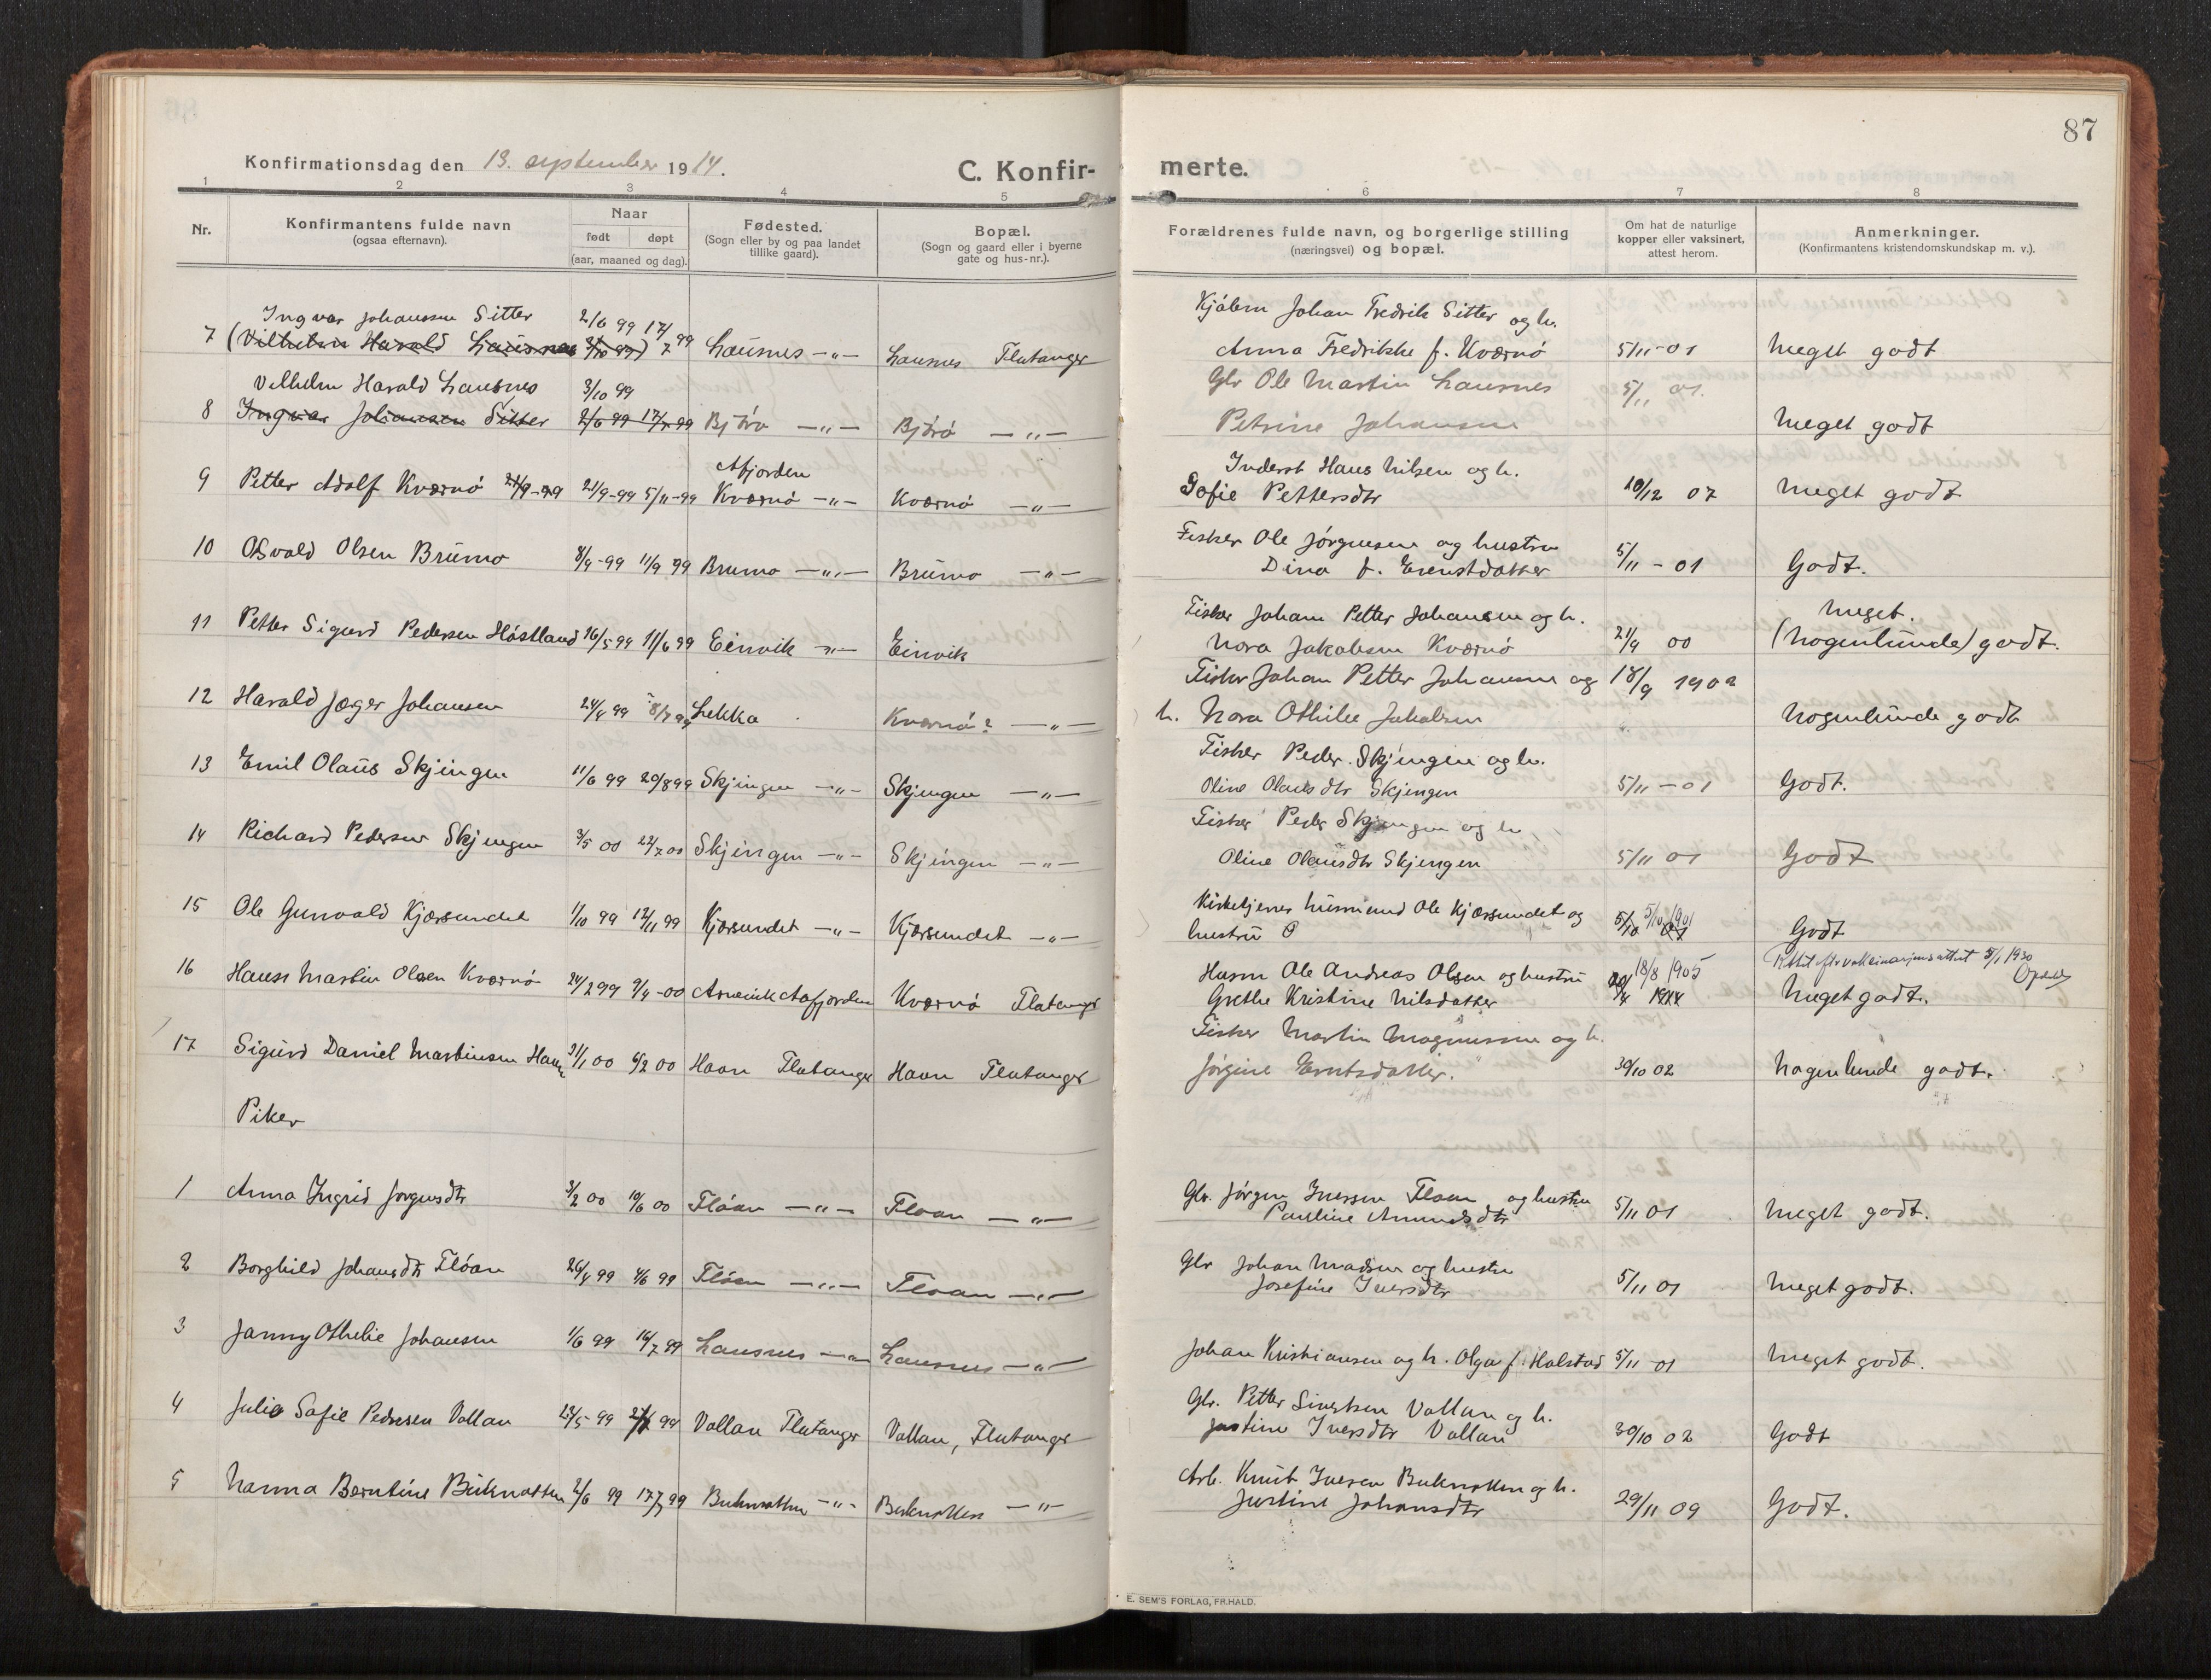 87
Konfirmationsdag den 13. september 1914.
C. Konfir-
merte.
1 2 3 4 5 6 7 8
Nr.
Konfirmantens fulde navn
(ogsaa efternavn).
Naar
født døpt
(aar, maaned og dag).
Fødested.
(Sogn eller by og paa landet
tillike gaard).
Bopæl.
(Sogn og gaard eller i byerne
gate og hus-nr.).
Forældrenes fulde navn, og borgerlige stilling
(næringsvei) og bopæl.
Om hat de naturlige
kopper eller vaksinert,
attest herom.
Anmerkninger.
(Konfirmantens kristendomskundskap m. v.).
Ingvar Johansen Sitter 2/6 99 17/7 99 Kjøbm Johan Fredrik Sitter og h.
7 (Vilhelm Harald Lausnes 3/10 99) Lausnes -„- Lausnes Flatanger Anna Fredrikke f. Kværnø 5/11-01 Meget godt
Vilhelm Harald Lausnes 3/10 99 Glr Ole Martin Lausnes 5/11 01.
8 Ingvar Johansen Sitter 2/6 99 17/7 99 Bjørø -„- Bjørø -„- Petrine Johansen Meget godt
Afjorden Inderst Hans Nilsen og h.
9 Petter Adolf Kværnø 21/9-99 21/9-99 5/11-99 Kværnø -„- Kværnø -„- Sofie Pettersdtr 10/12 07 Meget godt
10 Osvald Olsen Brumo 8/9-99 11/9 99 Brumo -„- Brumo -„- Fisker Ole Jørgensen og hustru
Dina f. Erenstdatter 5/11-01 Godt.
11 Petter Sigurd Pedersen Høstland 16/5 99 11/6 99 Einvik -„- Einvik Fisker Johan Petter Johansen og h. Meget.
Nora Jakobsen Kværnø 21/9 00 (Nogenlunde) godt.
Fisker Johan Petter Johansen og 18/9 1902
12 Harald Jæger Johansen 24/4 99 8/7 99 Lekka Kværnø? -„- h. Nora Othilie Jakobsen Nogenlunde godt
13 Emil Olaus Skjingen 11/6 99 20/8 99 Skjingen -„- Skjingen -„- Fisker Peder Skjingen og h.
Oline Olausdtr Skjengen 5/11-01 Godt.
14 Richard Pedersen Skjengen 3/5 00 22/7 00 Skjingen -„- Skjingen -„- Fisker Peder Skjengen og h.
Oline Olausdtr Skjengen 5/11 01 Godt
15 Ole Gunvald Kjærsundet 1/10 99 12/11 99 Kjærsundet -„- Kjærsundet -„- Kirketjener husmand Ole Kjærsundet og
hustru O 5/10 1901 Godt
Rettet efter vaksinasjonsattest 5/1 1930
16 Hans Martin Olsen Kværnø 24/2 99 9/4-00 Arnevik Aafjorden Kværnø Flatanger Husm Ole Andreas Olsen og hustru 18/8 1905
Grethe Kristine Nilsdatter 1914 Meget godt.
17 Sigurd Daniel Martinsen Haan 31/1 00 6/2 00 Haan Flatanger Haan Flatanger Fisker Martin Magnussen og h.
Jørgine Erntsdatter. 30/10 02 Nogenlunde godt.
Piker
1 Anna Ingrid Jørgensdtr 3/2 00 10/6 00 Fløan -„- Floan -„- Glr. Jørgen Iversen Floan og hustru
Pauline Amundsdtr 5/11 01 Meget godt.
2 Borghild Johansdtr Fløan 26/4 99 4/6 99 Fløen -„- Floan -„- Glr Johan Madsen og hustru
Josefine Iversdtr 5/11 01 Meget godt.
3 Janny Othelie Johansen 1/6 99 16/7 99 Lausnes -„- Lausnes -„- Johan Kristiansen og h. Olga f. Halstad 5/11-01 Meget godt.
4 Julie Sofie Pedersen Vollan 23/5 99 99 Vollan Flatanger Vollan, Flatanger Glr. Petter Sivertsen Vollan og h.
Justine Iversdtr Vollan 30/10 02 Godt
5 Nanna Berntine Buknotten 2/6 99 17/7 99 Buknotten -„- Buknotten -„- Arb. Knut Iversen Buknotten og h.
Justine Johansdtr 29/11 09 Godt.
E. SEM'S FORLAG, FR.HALD.